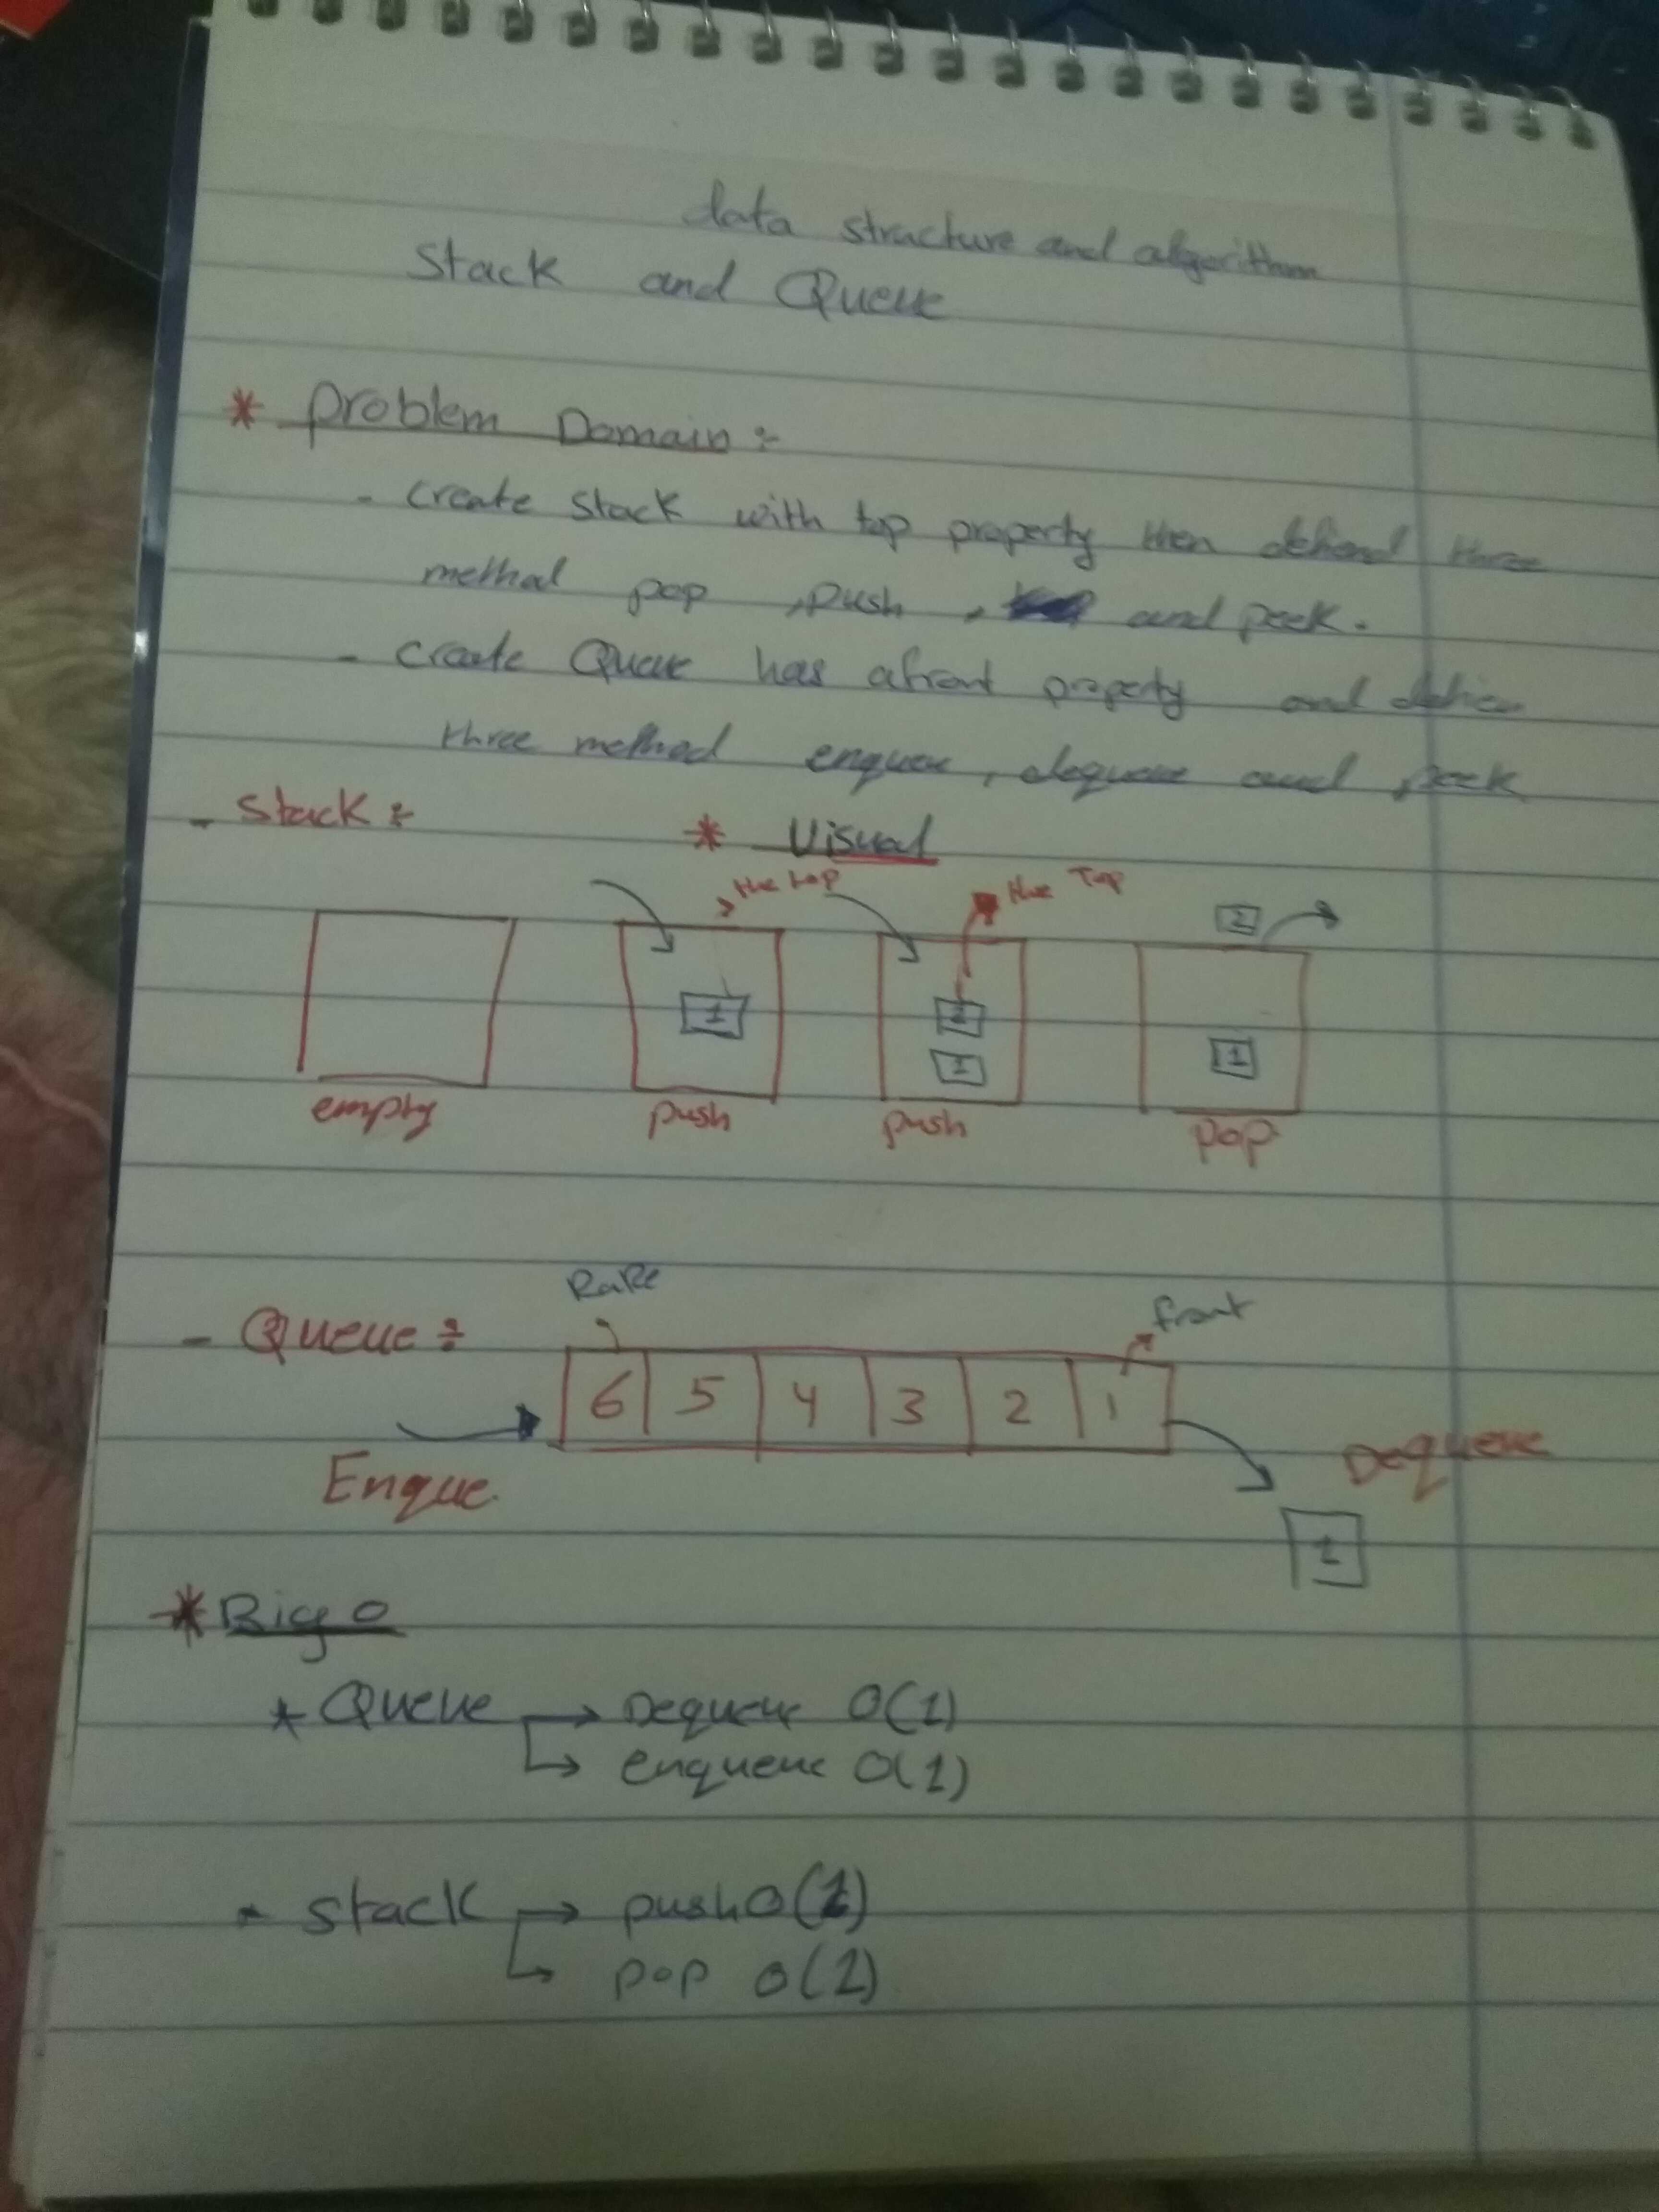 data structure and algorithm
Stack and Queue
* Problem Domain :-
- create stack with top property then defiend three
method pop , push , and peek.
- create Queue has a front property and
three method enqueue , dequeue and peek
- Stack :-
* Visual
the top
the Top
2
1
2
1
1
empty
push
push
pop
RaRe
front
- Queue :-
6 5 4 3 2 1
Enque
Dequeue
1
* Big O
* Queue → Dequeue O(1)
↳ enqueue O(1)
* stack → push O(1)
↳ pop O(1)